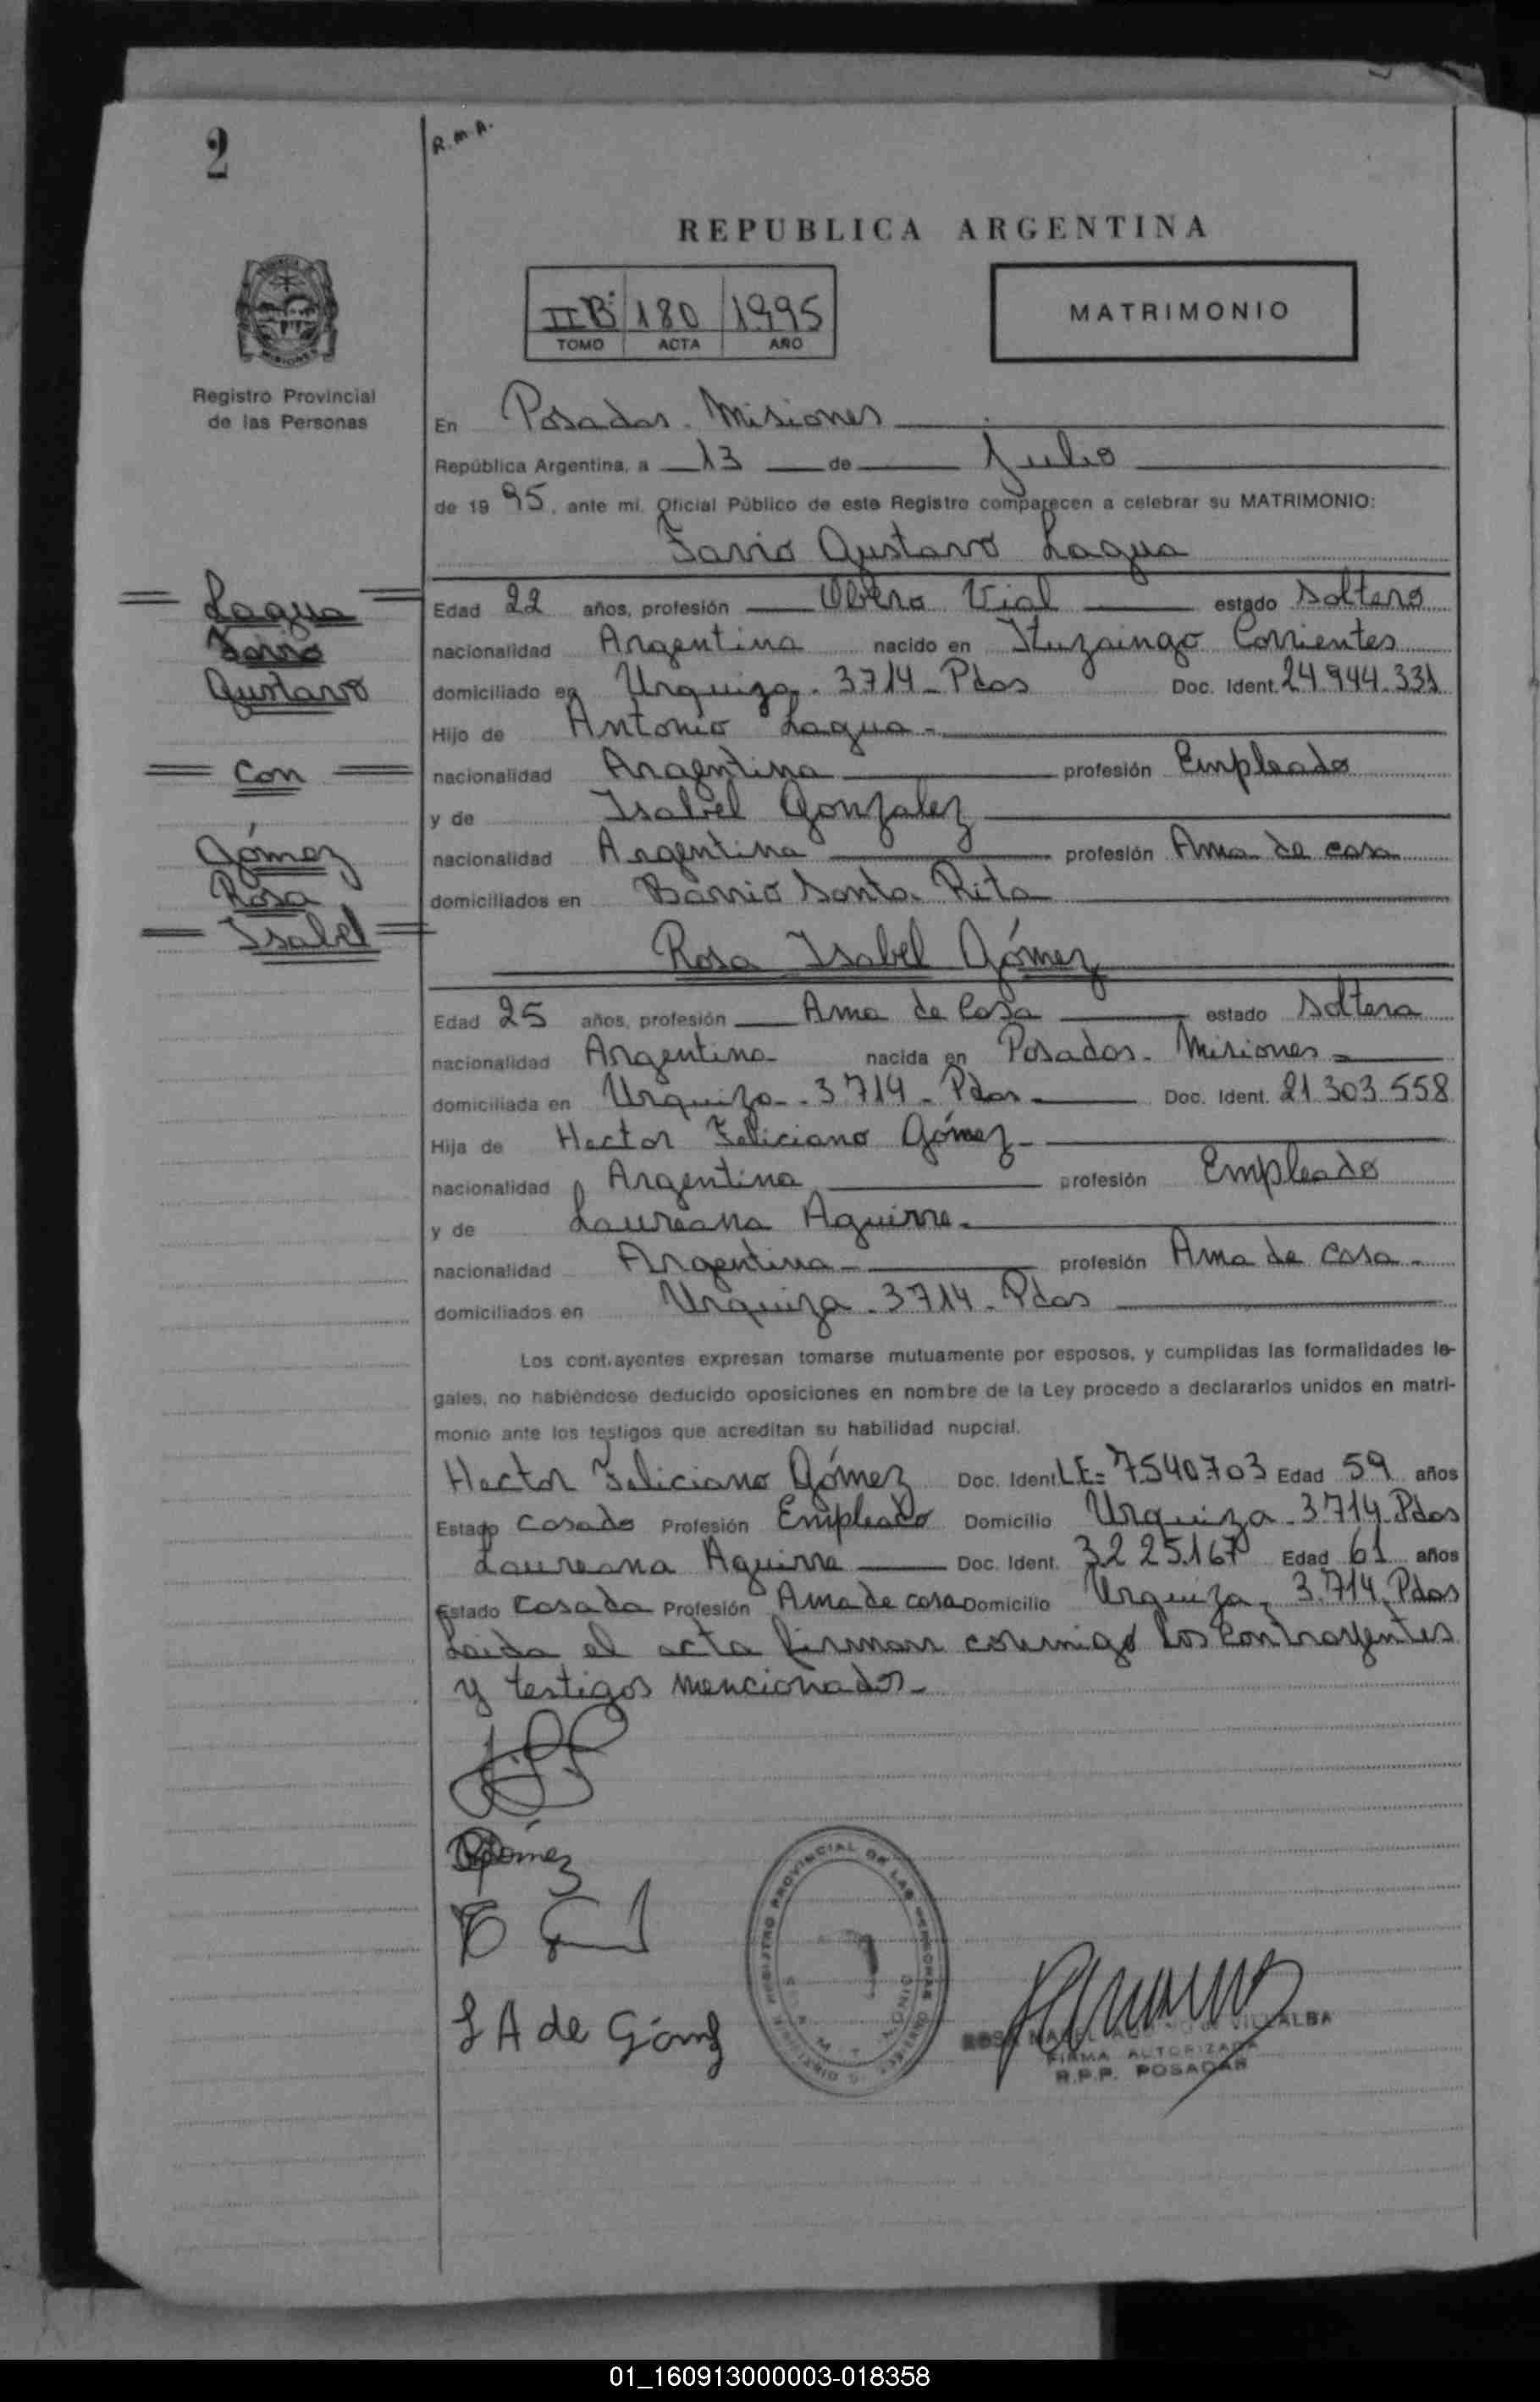 2
R.M.A.
REPUBLICA ARGENTINA
II Bº 180 1995
TOMO ACTA AÑO
MATRIMONIO
Registro Provincial
de las Personas
En Posadas - Misiones
República Argentina, a 13 de Julio
de 1995, ante mi, Oficial Público de este Registro comparecen a celebrar su MATRIMONIO:
Favio Gustavo Lagua
Lagua
Favio
Gustavo
Con
Gómez
Rosa
Isabel
Edad 22 años, profesión Obrero Vial estado Soltero
nacionalidad Argentina nacido en Ituzaingo Corrientes
domiciliado en Urquiza - 3714 - Pdas Doc. Ident. 24.944.331
Hijo de Antonio Lagua -
nacionalidad Argentina profesión Empleado
y de Isabel Gonzalez
nacionalidad Argentina profesión Ama de casa
domiciliados en Barrio Santa Rita
Rosa Isabel Gómez
Edad 25 años, profesión Ama de Casa estado Soltera
nacionalidad Argentina nacida en Posadas - Misiones -
domiciliada en Urquiza - 3714 - Pdas - Doc. Ident. 21.303.558
Hija de Hector Feliciano Gómez -
nacionalidad Argentina profesión Empleado
y de Laureana Aguirre -
nacionalidad Argentina - profesión Ama de casa -
domiciliados en Urquiza - 3714 - Pdas
Los contrayentes expresan tomarse mutuamente por esposos, y cumplidas las formalidades le-
gales, no habiéndose deducido oposiciones en nombre de la Ley procedo a declararlos unidos en matri-
monio ante los testigos que acreditan su habilidad nupcial.
Hector Feliciano Gómez Doc. Ident L.E= 7.540.703 Edad 59 años
Estado Casado Profesión Empleado Domicilio Urquiza - 3714 - Pdas
Laureana Aguirre Doc. Ident. 3.225.167 Edad 61 años
Estado Casada Profesión Ama de casa Domicilio Urquiza - 3.714 - Pdas
Leida el acta firman conmigo los contrayentes
y testigos mencionados -
Gómez
L A de Góm
REGISTRO PROVINCIAL DE LAS PERSONAS
VILLALBA
FIRMA AUTORIZADA
R.P.P. POSADAS
01_160913000003-018358